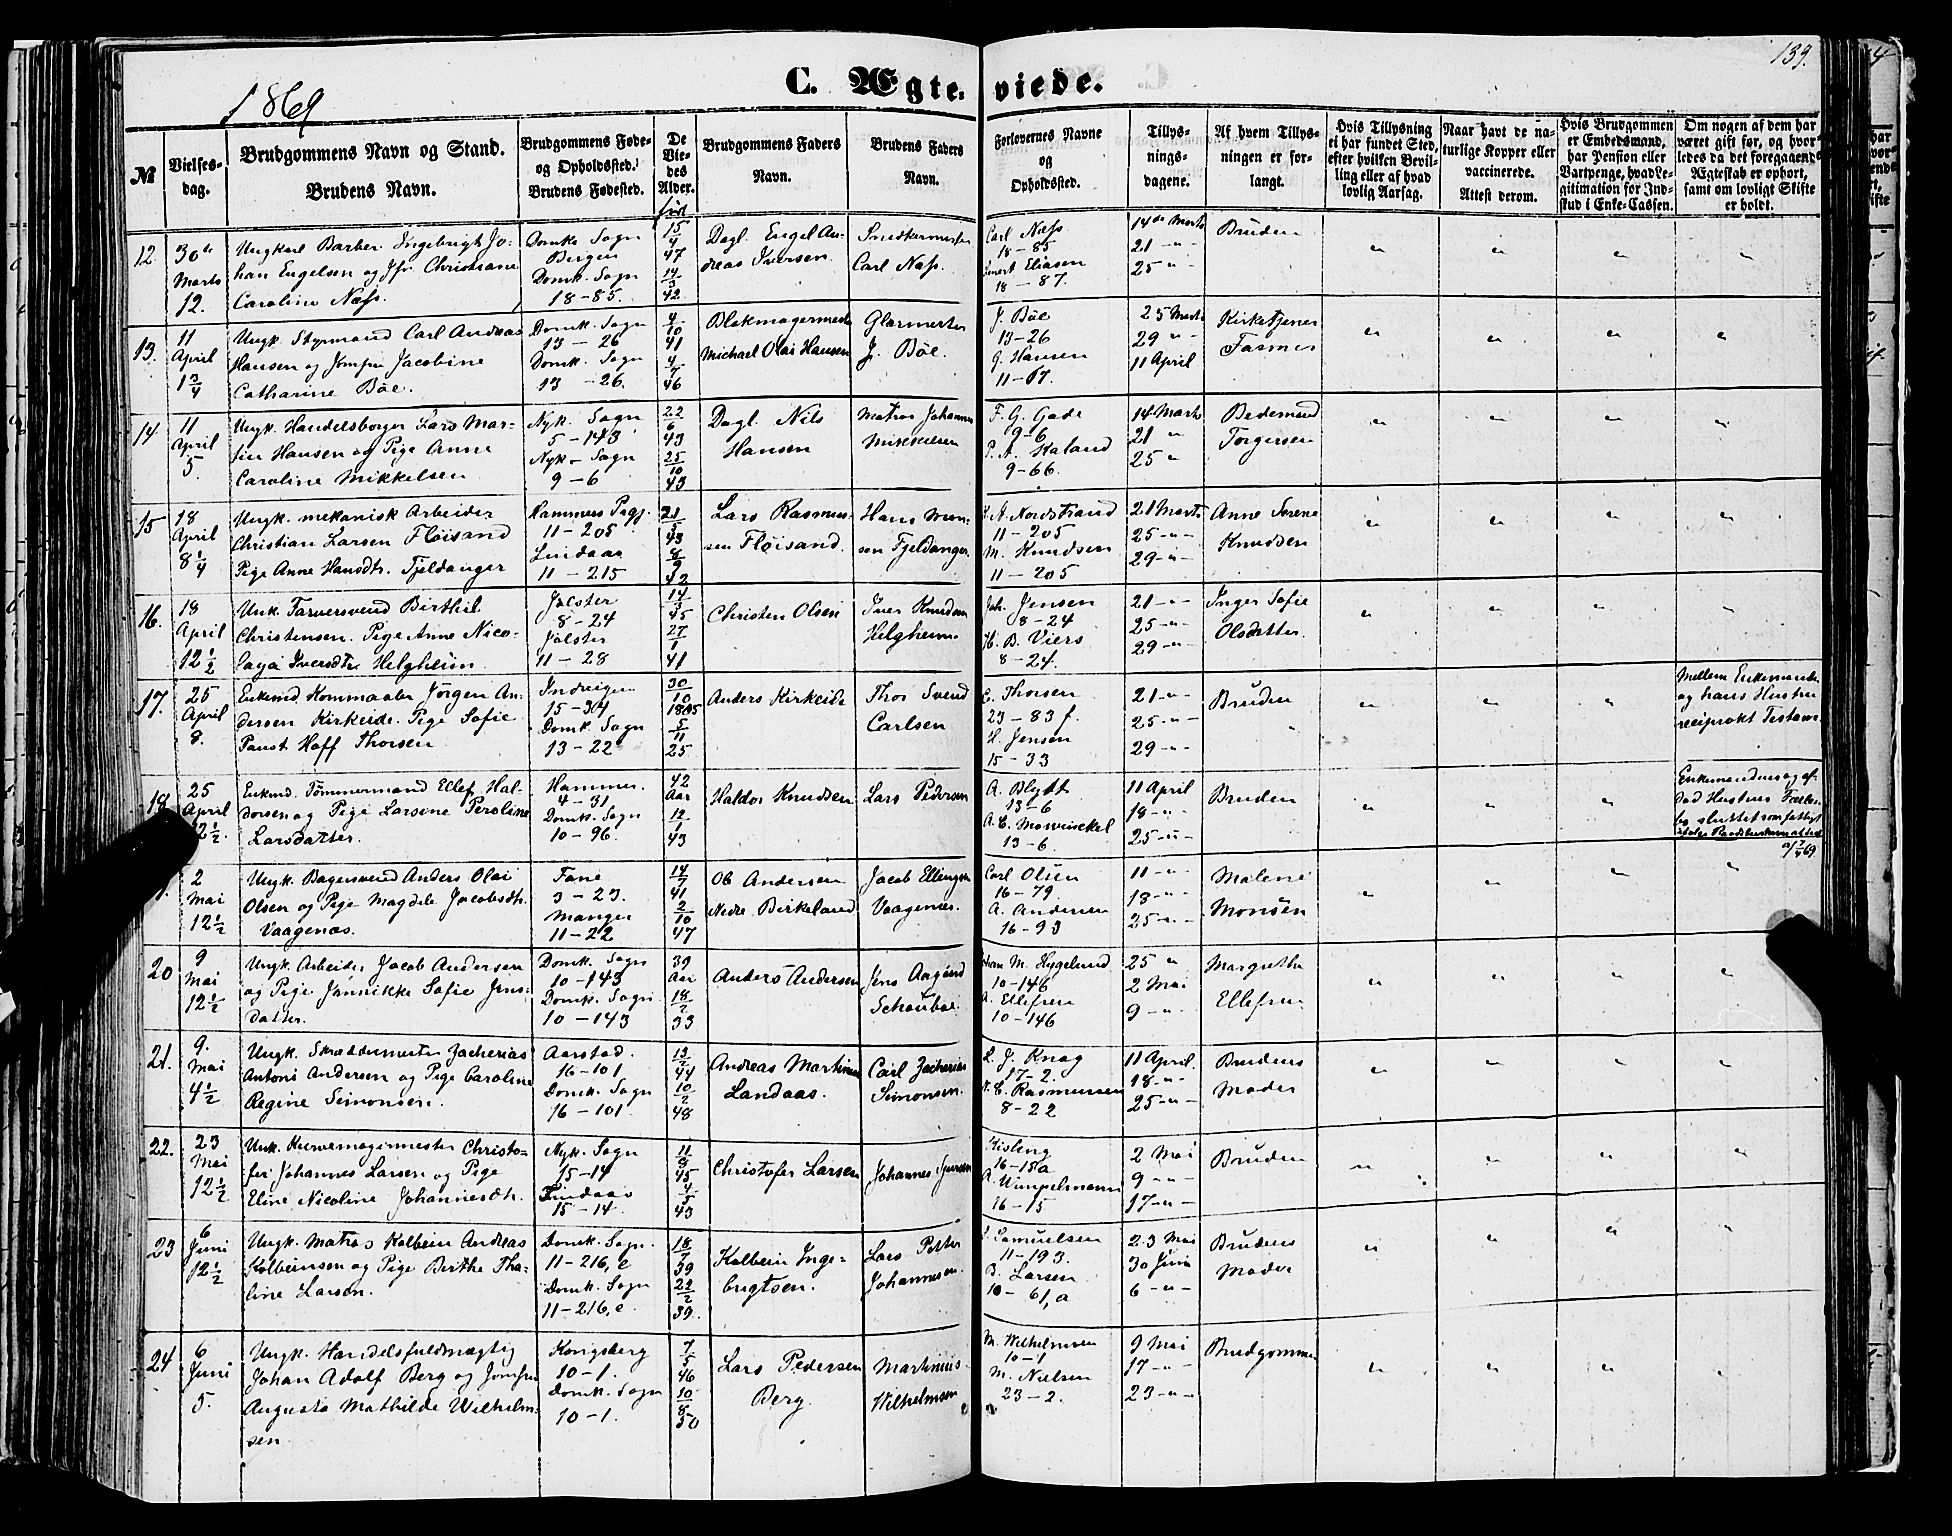 139.
1869
C. Ægteviede.
№
Vielses-dag.
Brudgommens Navn og Stand.
Brudens Navn.
Brudgommens Føde- og Opholdssted.
Brudens Fødested.
De Viedes Alder.
født
Brudgommens Faders Navn.
Brudens Faders Navn.
Forlovernes Navne og Opholdssted.
Tillysnings-dagene.
Af hvem Tillysningen er forlangt.
Hvis Tillysning ei har fundet Sted, efter hvilken Bevilling eller af hvad lovlig Aarsag.
Naar havt de naturlige Kopper eller vaccinerede. Attest derom.
Hvis Brudgommen er Embedsmand, har Pension eller Vartpenge, hvad Legitimation for Indskud i Enke-Cassen.
Om nogen af dem har været gift før, og hvorledes da det foregaaende Ægteskab er ophørt, samt om lovligt Skifte er holdt.
12. 30te Marts 12.
Ungkarl Barber Ingebrigt Johan Engelsen og Jfr. Christiane Caroline Næss.
Domk. Sogn Bergen
Domk. Sogn 18-85.
15/4 47
14/3 42
Dagl. Engel Andreas Iversen
Snedkermester Carl Næss.
Carl Næss 18-85
Eliasen 18-87.
14de Marts
21 -"-
25 "
Bruden
13. 11 April 1 3/4
Ungk. Styrmand Carl Andreas Hansen og Jomfru Jacobine Catharine Böe.
Domk. Sogn 13-26
Domk. Sogn 13-26.
4/10 41
4/7 46
Blokmagermester Michael Olai Hansen
Glarmester J. Böe.
J. Böe 13-26
G. Hansen 11-67.
25 Marts
29 "
11 April
Kirketjener Fasmer
14. 11 April 5.
Ungk. Handelsborger Lars Martin Hansen og Pige Anne Caroline Mikkelsen
Nyk. Sogn 5-143
Nyk. Sogn 9-6
22/6 43
25/10 43
Dagl. Nils Hansen
Matros Johannes Mikkelsen
F. G. Gade 9-6
P. A. Kaland 9-66.
14 Marts
21 "
25 "
Bedemand Torgersen
15 18 April 8 1/4
Ungk. mekanisk Arbeider Christian Larsen Flöisand
Pige Anne Hansdtr. Fjeldanger
Hammers Prgj. 11-205
Lindaas 11-215
21/5 43
8/9 42
Lars Rasmussen Flöisand.
Hans Monsen Fjeldanger
A. Nordstrand 11-205
M. Knudsen 11-205
21 Marts
25 -"-
29 -"-
Anne Serene Knudsen
16. 18 April 12 1/2
Unk. Farversvend Birthil Christensen. Pige Anne Nicolaya Iversdtr Helgheim
Jölster 8-24
Jölster 11-28
14/3 45
27/1 41
Christen Olsen
Iver Knudsen Helgheim
Joh. Jensen 8-24
H. B. Viers 8-24.
21 -"-
25 -"-
29 -"-
Inger Sofie Olsdatter
17. 25 April 8.
Enkemd Kornmaaler Jörgen Andersen Kirkeide. Pige Sofie Paust Hoff Thorsen
Indvigen 15-34
Domk. Sogn 13-22
30/10 1805
5/11 25
Anders Kirkeide
Thor Svend Carlsen
C. Thorsen 23-83 f.
H. Jensen 15-33
21 -"-
25 -"-
29 -"-
Bruden
Mellem Enkemanden og hans Hustru reciprokt Testam.
18. 25 April 12 1/2.
Enkemd. Tömmermand Ellef Haldorsen og Pige Larsine Peroline Larsdatter.
Hammer. 4-31
Domk. Sogn 10-96.
42 Aar
12/1 43
Haldor Knudsen
Lars Pedersen
A. Blytt 13-6
A. C. Mowinckel 13-6.
11 April
18 -"-
25 -"-
Bruden
Enkemandens og afdød Hustrus Fællesbo sluttet som fattigt ifølge Raadstuskrivn attest
2 Mai 12 1/2
Ungk. Bagersvend Anders Olai Olsen og Pige Magdele Jacobsdtr. Vaagenæs.
Fane 3-23.
Manger 11-22
14/7 41
2/10 47
Ole Andersen Nedre Birkeland
Jacob Ellingsen Vaagenæs.
Carl Olsen 16-79
A. Andersen 16-93
11 -"-
18 -"-
25 -"-
Malene Monsen
20 9 Mai 12 1/2
Ungk. Arbeider Jacob Andersen og Pige Jannikke Sofie Jensdatter.
Domk. Sogn 10-143
Domk. Sogn. 10-143
39 Aar
18/2 33
Anders Andersen
Jens Aagaard Schoubo.
M. Hygelund 10-146
A. Ellefsen 10-146
25 "
2 Mai
9 -"-
Margrethe Ellefsen
21. 9. Mai 4 1/2
Ungk. Skræddermester Zacherias Antoni Andersen og Pige Caroline Regine Simonsen.
Aarstad. 16-101
Domk. Sogn 16-101.
13/7 44
10/2 48
Andreas Martinus Landaas.
Carl Zacherias Simonsen.
L. J. Knag 17-2.
C. Rasmussen 8-22
11 April.
18 -"-
25 -"-
Brudens Moder
22. 23 Mai 12 1/2
Unk. Kurvemagermester Christofer Johannes Larsen og Pige Eline Nicoline Johannesdtr.
Nyk. Sogn 15-14
Lindaas 15-14.
11/8 45
4/5 43
Christofer Larsen
Johannes
Kisling 16-15a
A. Wimpelmann 16-15
2 Mai
9 -"-
17 -"-
Bruden
23 6 Juni 12 1/2
Ungk. Matros Kolbein Andreas Kolbeinsen og Pige Berthe Thaline Larsen.
Domk. Sogn. 11-216, e
Domk. Sogn 11-216, e.
18/7 39
22/2 39.
Kolbein Ingebrigtsen.
Lars Petter Johannesen.
Samuelsen 11-193.
B. Larsen 10-61, a
23 Mai
30 Juni
6 -"-
Brudens Moder
24 6 Juni 5.
Ungk. Handelsfuldmægtig Johan Adolf Berg og Jomfru Augusta Mathilde Wilhelmsen.
Kongsberg 10-1.
Domk. Sogn 10-1.
7/5 46
10/8 50
Lars Pedersen Berg.
Martinus Wilhelmsen
M. Wilhelmsen 10-1
M. Nielsen 23-2.
9 Mai
17 -"-
23 -"-
Brudgommen